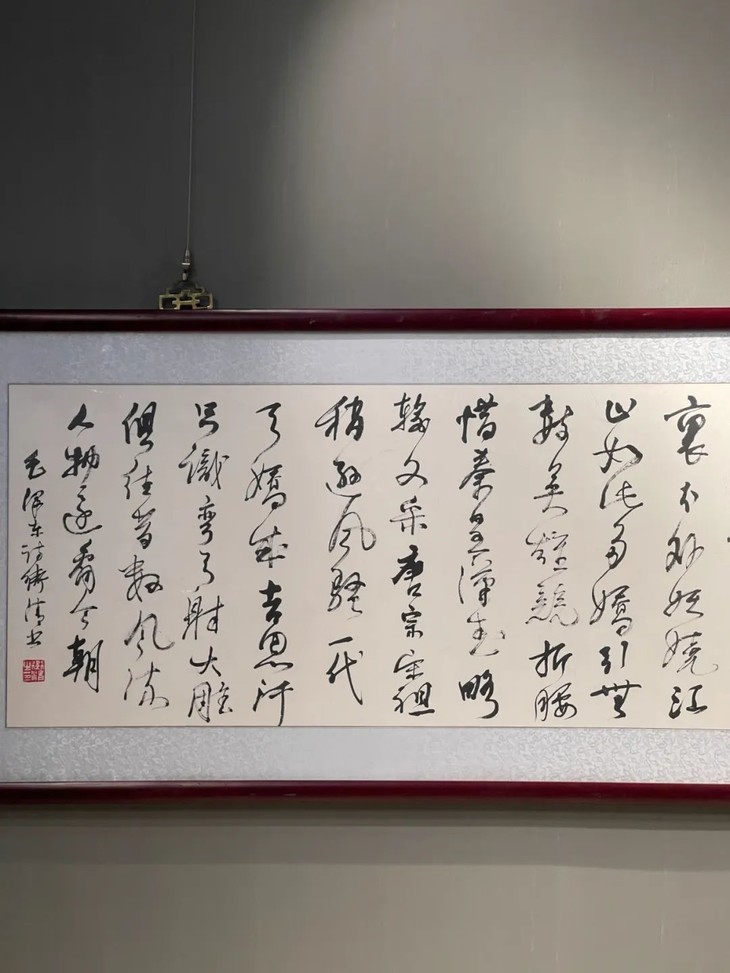 裹分外妖嬈江
山如此多嬌引無
數英雄競折腰
惜秦皇漢武略
輸文采唐宗宋祖
稍遜風騷一代
天嬌成吉思汗
只識彎弓射大雕
俱往矣數風流
人物還看今朝
毛澤东詩衛清书